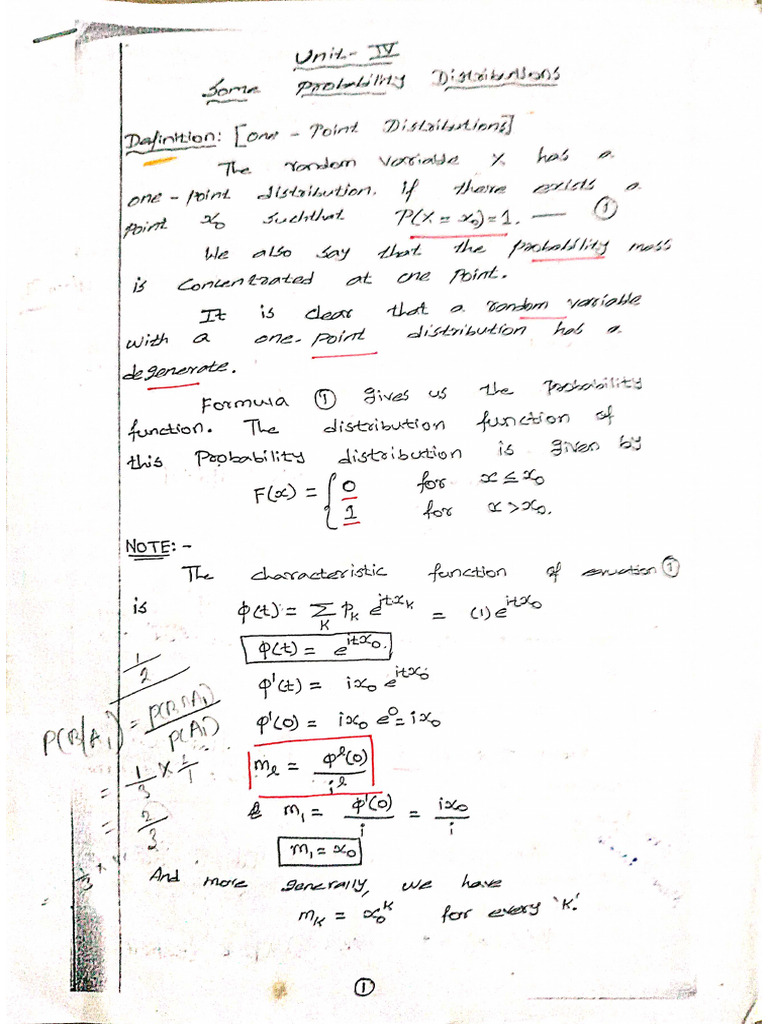 Unit - IV
Some Probability Distributions
Definition: [One - Point Distributions]
The random variable X has a
one - point distribution, if there exists a
point x₀ such that P(X = x₀) = 1. — ①
We also say that the probability mass
is concentrated at one point.
It is clear that a random variable
with a one - point distribution has a
degenerate.
Formula ① gives us the probability
function. The distribution function of
this probability distribution is given by
F(x) = { 0 for x ≤ x₀
1 for x > x₀.
NOTE: -
The characteristic function of equation ①
is φ(t) = Σ_K P_K e^{itx_K} = (1) e^{itx₀}
φ(t) = e^{itx₀}.
φ'(t) = ix₀ e^{itx₀}
φ'(0) = ix₀ e⁰ = ix₀
m_l = φ^l(0) / i^l
m₁ = φ'(0) / i = ix₀ / i
m₁ = x₀
And more generally, we have
m_K = x₀^K for every 'K'.
①
1/2
P(B/A₁) = P(B∩A₁) / P(A₁)
= 1/3 ×
= 2/3